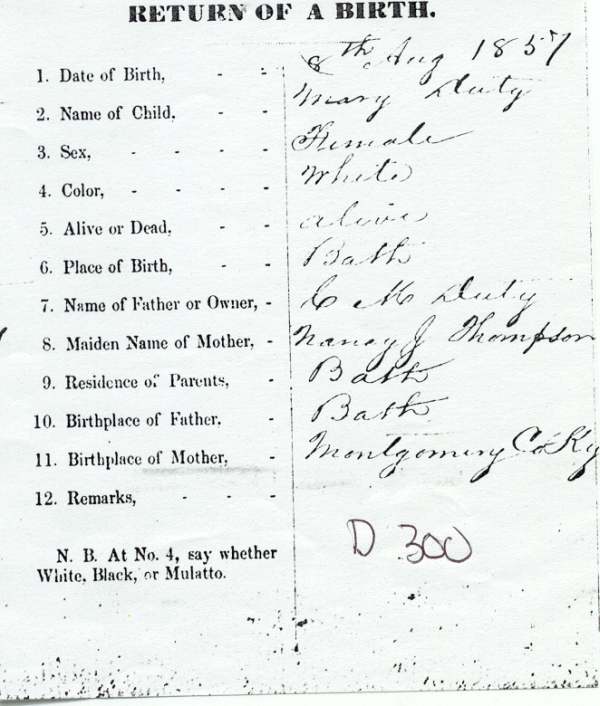 RETURN OF A BIRTH.
1. Date of Birth, - - 8th Aug 1857
2. Name of Child. - - Mary Duty
3. Sex, - - - - Female
4. Color, - - - - White
5. Alive or Dead, - - alive
6. Place of Birth, - - Bath
7. Name of Father or Owner, - C M Duty
8. Maiden Name of Mother, - Nancy J Thompson
9. Residence of Parents, - Bath
10. Birthplace of Father. - Bath
11. Birthplace of Mother, - Montgomery Co Ky
12. Remarks, - - -
D 300
N. B. At No. 4, say whether
White, Black, or Mulatto.